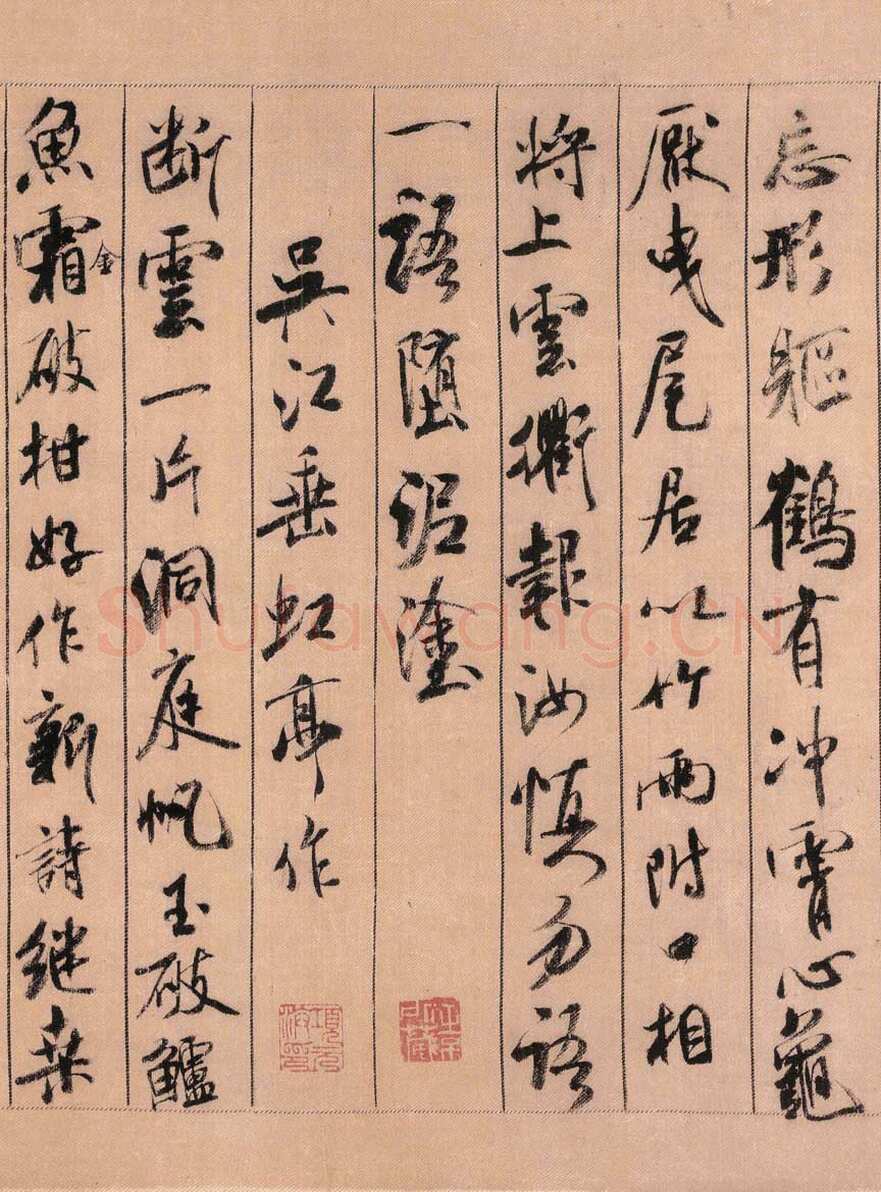 忘形躯鹤有冲霄心龜
厭曳尾居以竹兩附口相
将上雲衢報汝慎勿語
一語墮泥塗
吳江垂虹亭作
断雲一片洞庭帆玉破鱸
魚霜金破柑好作新詩継桒
Shuhawang.CN